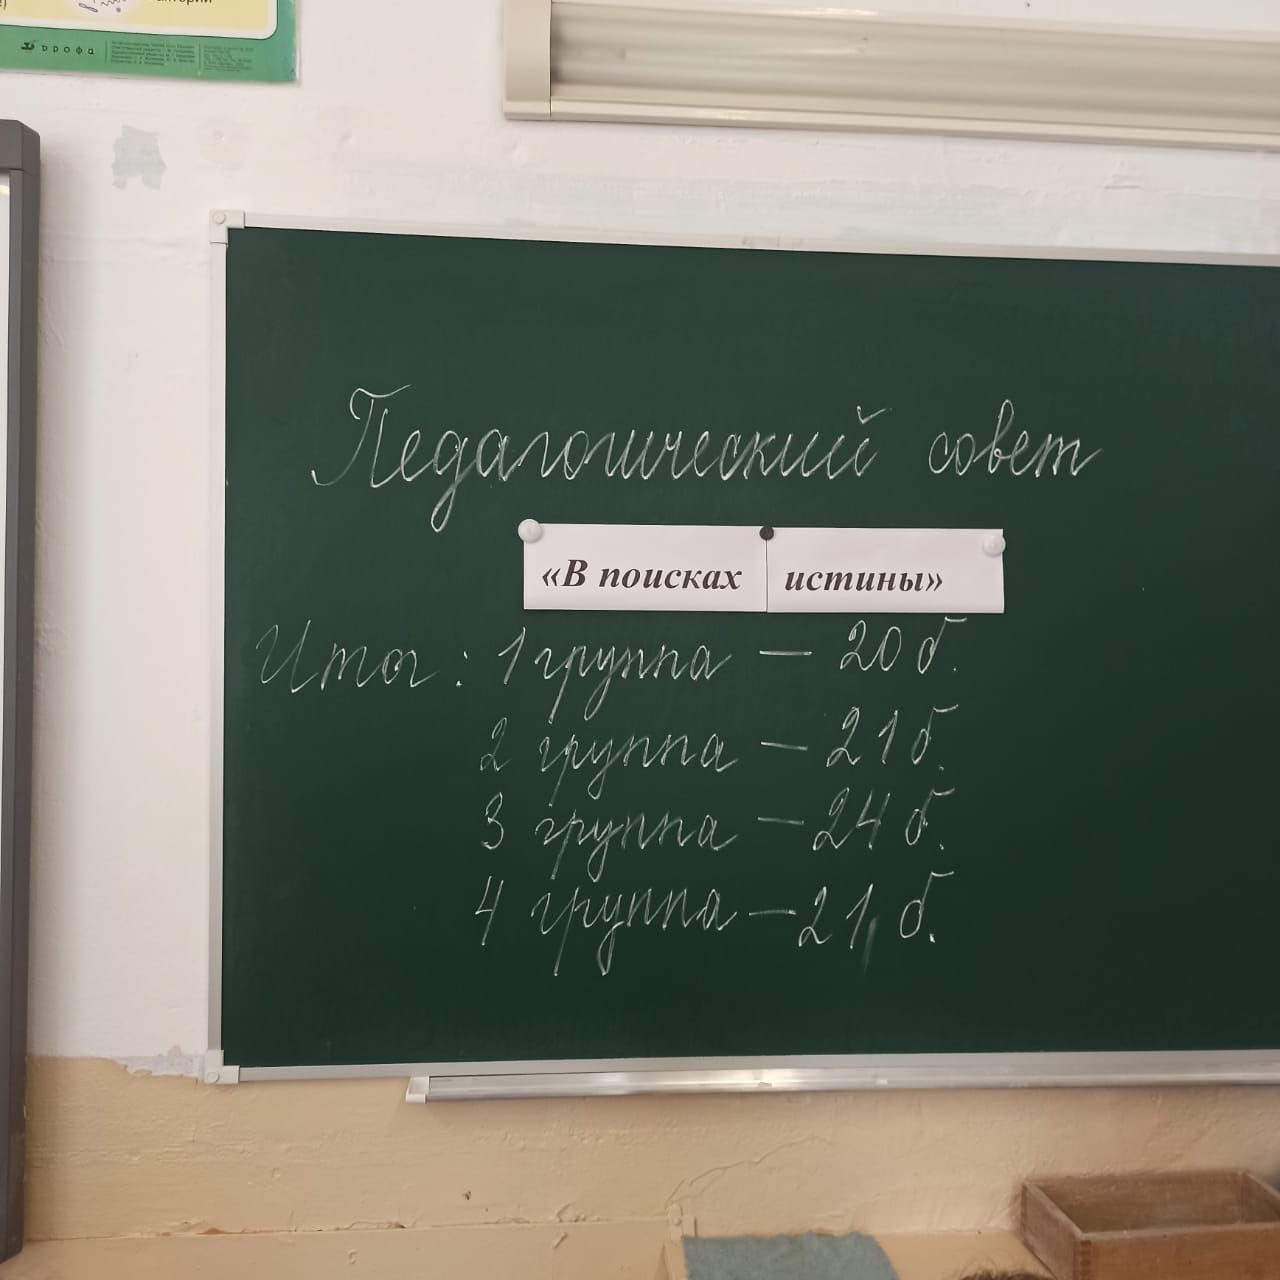 дрофа
Педагогический совет
«В поисках истины»
Итог: 1 группа — 20 б.
2 группа — 21 б.
3 группа — 24 б.
4 группа — 21, б.